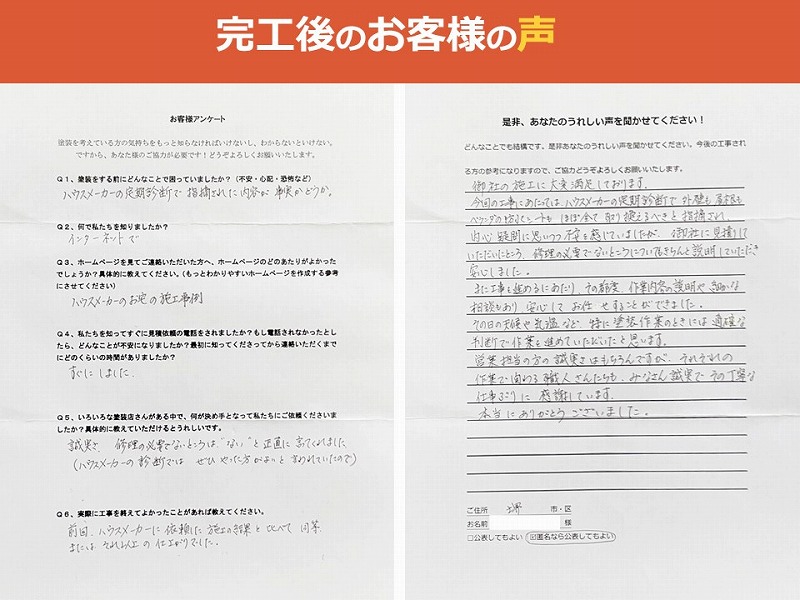 完工後のお客様の声
お客様アンケート
塗装を考えている方の気持ちをもっと知らなければいけないし、わからないといけない。
ですから、あなた様のご協力が必要です！どうぞよろしくお願いいたします。
Q1、塗装をする前にどんなことで困っていましたか？（不安・心配・恐怖など）
ハウスメーカーの定期診断で指摘された内容が事実かどうか。
Q2、何で私たちを知りましたか？
インターネットで
Q3、ホームページを見てご連絡いただいた方へ、ホームページのどのあたりがよかった
でしょうか？具体的に教えてください。（もっとわかりやすいホームページを作成する参考
にさせてください）
ハウスメーカーのお宅の施工事例
Q4、私たちを知ってすぐに見積依頼の電話をされましたか？もし電話されなかったとし
たら、どんなことが不安になりましたか？最初に知ってくださってから連絡いただくまで
にどのくらいの時間がありましたか？
すぐにしました。
Q5、いろいろな塗装店さんがある中で、何が決め手となって私たちにご依頼くださいま
したか？具体的に教えていただけるとうれしいです。
誠実さ。修理の必要でないところは"ない"と正直に言ってくれました
（ハウスメーカーの診断では ぜひ やった方がよいと言われていたので）
Q6、実際に工事を終えてよかったことがあれば教えてください。
前回、ハウスメーカーに依頼した施工の結果と比べて 同等
または それ以上の仕上がりでした。
是非、あなたのうれしい声を聞かせてください！
どんなことでも結構です。是非あなたのうれしい声を聞かせてください。今後の工事され
る方の参考になりますので、ご協力どうぞよろしくお願いいたします。
御社の施工に大変満足しております。
今回の工事にあたっては、ハウスメーカーの定期診断で外壁も屋根も
ベランダの防水シートも ほぼ全て取り換えるべきと指摘され、
内心疑問に思いつつ不安を感じていましたが、御社に見積して
いただいたところ、修理の必要でないところについてもきちんと説明していただき
安心しました。
また工事を進めるにあたり、その都度 作業内容の説明や細かな
相談もあり 安心して お任せすることができました。
その日の天候や気温など、特に塗装作業のときには適確な
判断で作業を進めていただいたと思います。
営業担当の方の誠実さはもちろんですが、それぞれの
作業で関わる職人さんたちも、みなさん誠実でその丁寧な
仕事ぶりに感謝しています。
本当にありがとうございました。
ご住所 堺 市・区
お名前 様
□公表してもよい ☑匿名なら公表してもよい